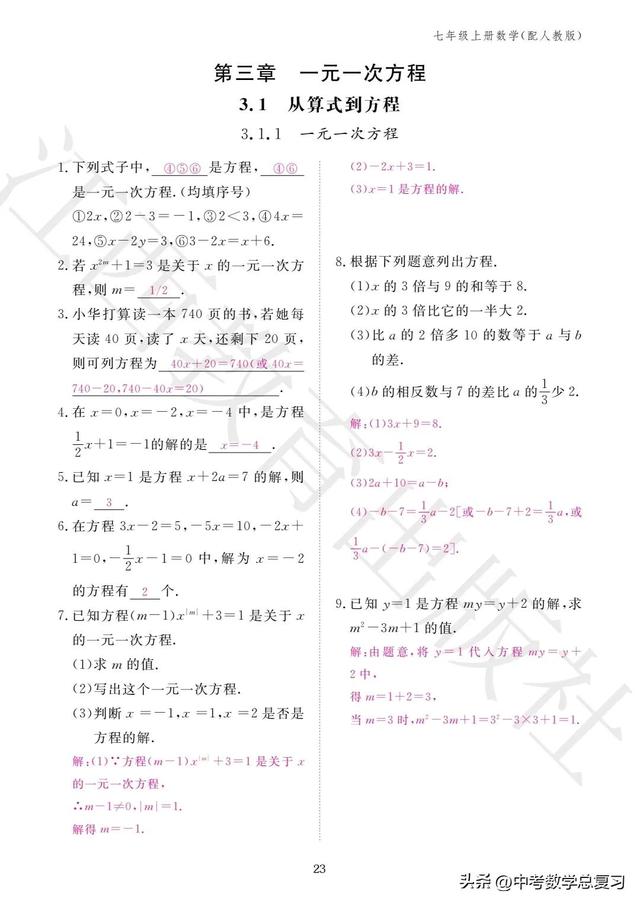 七年级上册数学(配人教版)
第三章 一元一次方程
3.1 从算式到方程
3.1.1 一元一次方程
1.下列式子中, ④⑤⑥ 是方程, ④⑥
是一元一次方程.(均填序号)
①2x,②2-3=-1,③2<3,④4x=
24,⑤x-2y=3,⑥3-2x=x+6.
2.若 x²ᵐ+1=3 是关于 x 的一元一次方
程,则 m= 1/2 .
3.小华打算读一本 740 页的书,若她每
天读 40 页,读了 x 天,还剩下 20 页,
则可列方程为 40x+20=740(或 40x=
740-20,740-40x=20) .
4.在 x=0,x=-2,x=-4 中,是方程
1/2 x+1=-1的解的是 x=-4 .
5.已知 x=1 是方程 x+2a=7 的解,则
a= 3 .
6.在方程 3x-2=5,-5x=10,-2x+
1=0,-1/2 x-1=0 中,解为 x=-2
的方程有 2 个.
7.已知方程(m-1)x^|m|+3=1 是关于 x
的一元一次方程.
(1)求 m 的值.
(2)写出这个一元一次方程.
(3)判断 x=-1,x=1,x=2 是否是
方程的解.
解:(1)∵方程(m-1)x^|m|+3=1 是关于 x
的一元一次方程,
∴m-1≠0,|m|=1.
解得 m=-1.
(2)-2x+3=1.
(3)x=1 是方程的解.
8.根据下列题意列出方程.
(1)x 的 3 倍与 9 的和等于 8.
(2)x 的 3 倍比它的一半大 2.
(3)比 a 的 2 倍多 10 的数等于 a 与 b
的差.
(4)b 的相反数与 7 的差比 a 的 1/3 少 2.
解:(1)3x+9=8.
(2)3x-1/2 x=2.
(3)2a+10=a-b;
(4)-b-7=1/3 a-2[或-b-7+2=1/3 a,或
1/3 a-(-b-7)=2].
9.已知 y=1 是方程 my=y+2 的解,求
m²-3m+1 的值.
解:由题意,将 y=1 代入方程 my=y+
2 中,
得 m=1+2=3,
当 m=3 时,m²-3m+1=3²-3×3+1=1.
江西教育出版社
23
头条 @中考数学总复习